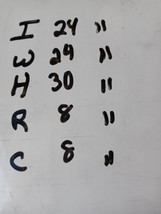 I 24 "
W 29 "
H 30 "
R 8 "
C 8 "